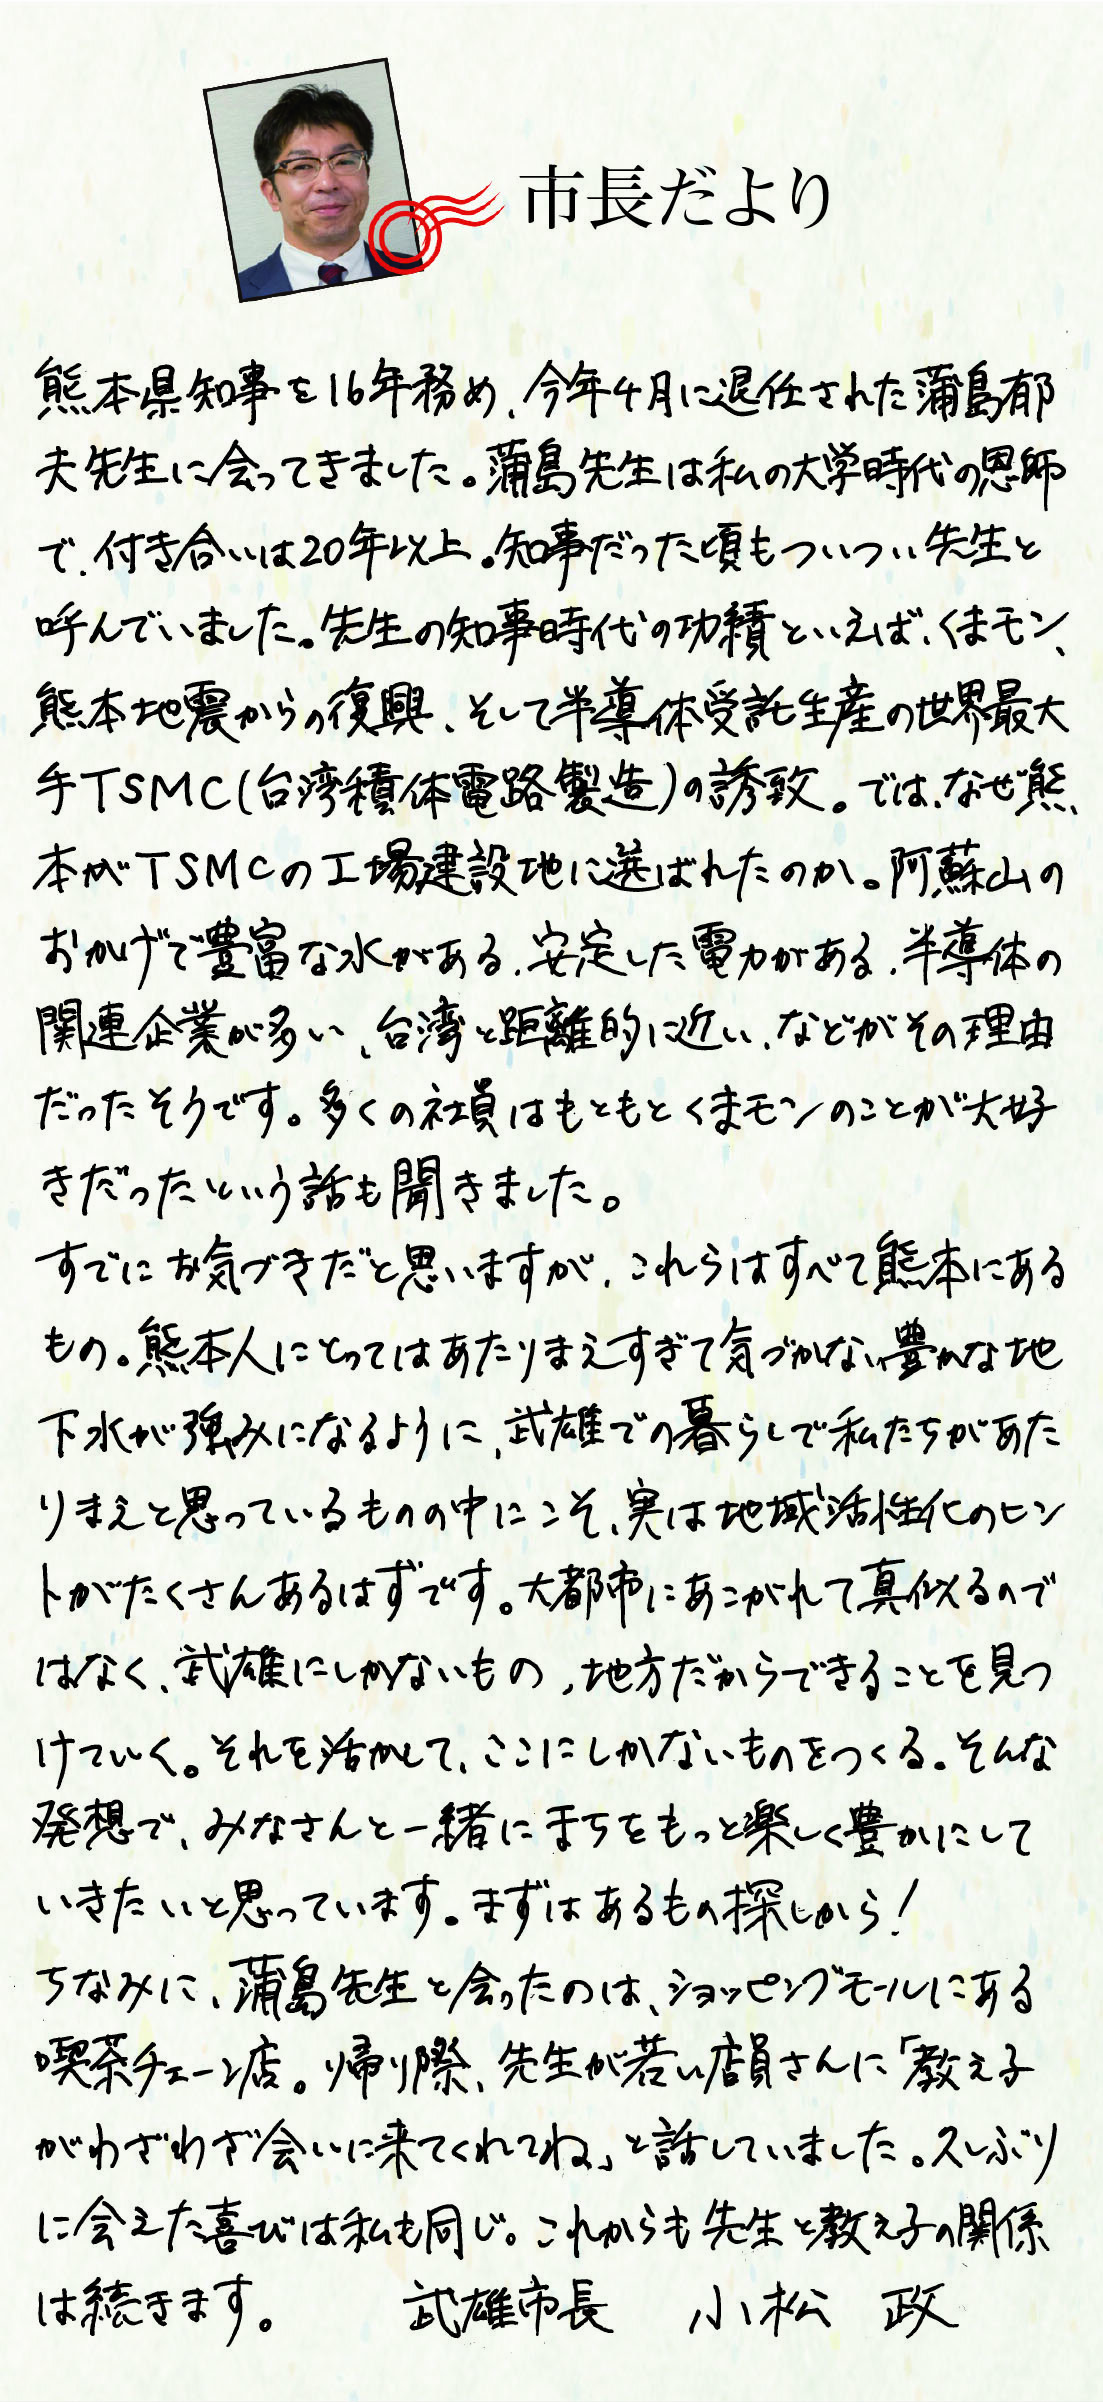 市長だより
熊本県知事を16年務め、今年4月に退任された蒲島郁
夫先生に会ってきました。蒲島先生は私の大学時代の恩師
で、付き合いは20年以上。知事だった頃もついつい先生と
呼んでいました。先生の知事時代の功績といえば、くまモン、
熊本地震からの復興、そして半導体受託生産の世界最大
手TSMC(台湾積体電路製造)の誘致。では、なぜ熊
本がTSMCの工場建設地に選ばれたのか。阿蘇山の
おかげで豊富な水がある、安定した電力がある、半導体の
関連企業が多い、台湾と距離的に近い、などがその理由
だったそうです。多くの社員はもともとくまモンのことが大好
きだったという話も聞きました。
すでにお気づきだと思いますが、これらはすべて熊本にある
もの。熊本人にとってはあたりまえすぎて気づかない豊かな地
下水が強みになるように、武雄での暮らしで私たちがあた
りまえと思っているものの中にこそ、実は地域活性化のヒン
トがたくさんあるはずです。大都市にあこがれて真似るので
はなく、武雄にしかないもの、地方だからできることを見つ
けていく。それを活かして、ここにしかないものをつくる。そんな
発想で、みなさんと一緒にまちをもっと楽しく豊かにして
いきたいと思っています。まずはあるもの探しから!
ちなみに、蒲島先生と会ったのは、ショッピングモールにある
喫茶チェーン店。帰り際、先生が若い店員さんに「教え子
がわざわざ会いに来てくれてね」と話していました。久しぶり
に会えた喜びは私も同じ。これからも先生と教え子の関係
は続きます。 武雄市長 小松 政